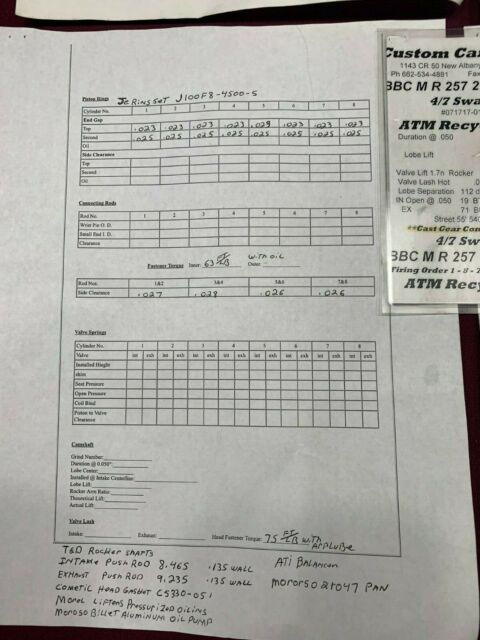 Piston Rings JE RING SET J100F8-4500-5
Cylinder No. 1 2 3 4 5 6 7 8
End Gap
Top .023 .023 .023 .023 .023 .023 .023
Second .025 .025 .025 .025 .025 .025 .025 .025
Oil
Side Clearance
Top
Second
Oil
Connecting Rods
Rod No. 1 2 3 4 5 6 7 8
Wrist Pin O. D.
Small End I. D.
Clearance
Fastener Torque Inner: 63 FT/LB Outer: WITH OIL
Rod Nos. 1&2 3&4 5&6 7&8
Side Clearance .027 .028 .026 .026
Valve Springs
Cylinder No. 1 2 3 4 5 6 7 8
Valve int exh int exh int exh int exh int exh int exh int exh int exh
Installed Hieght
shim
Seat Pressure
Open Pressure
Coil Bind
Piston to Valve
Clearance
Camshaft
Grind Number:
Duration @ 0.050":
Lobe Center:
Installed @ Intake Centerline:
Lobe Lift:
Rocker Arm Ratio:
Theoretical Lift:
Actual Lift:
Valve Lash
Intake: Exhaust: Head Fastener Torque: 75 FT/LB WITH
ARP LUBE
T&D Rocker SHAFTS
INTAKE PUSH ROD 8.465 .135 WALL
EXHAUST PUSH ROD 9.235 .135 WALL
COMETIC HEAD GASKET C5330-051
MOREL LIFTERS PRESSURIZED OILING
MOROSO BILLET ALUMINUM OIL PUMP
ATI BALANCER
MOROSO 21047 PAN
Custom Ca
1143 CR 50 New Albany
Ph 662-534-4891 Fax
BBC M R 257 2
4/7 Swa
#071717-0
ATM Recy
Duration @ .050
Lobe Lift
Valve Lift 1.7n Rocker
Valve Lash Hot .0
Lobe Separation 112 d
IN Open @ .050 19 BT
EX 71 B
Street 55' 540
**Cast Gear Com
4/7 Sw
BBC M R 257
Firing Order 1 - 8 - 7
ATM Recy